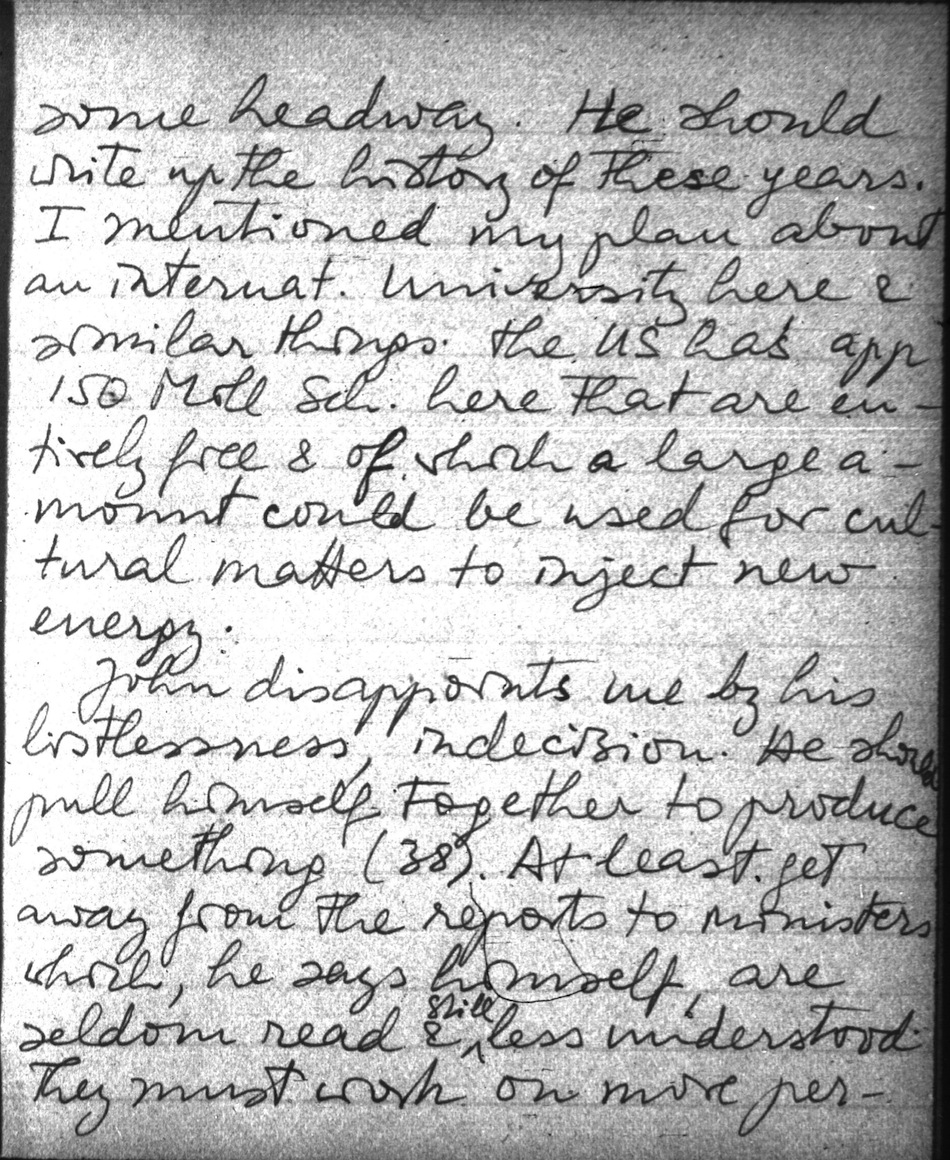 some headway. He should
write up the history of these years.
I mentioned my plan about
an internat. University here &
similar things. the US has app
150 Mill Sch. here that are en-
tirely free & of which a large a-
mount could be used for cul-
tural matters to inject new
energy.
John disappoints me by his
listlessness, indecision. He should
pull himself together to produce
something (38). At least get
away from the reports to ministers
which, he says himself, are
seldom read & still less understood.
They must work on more per-